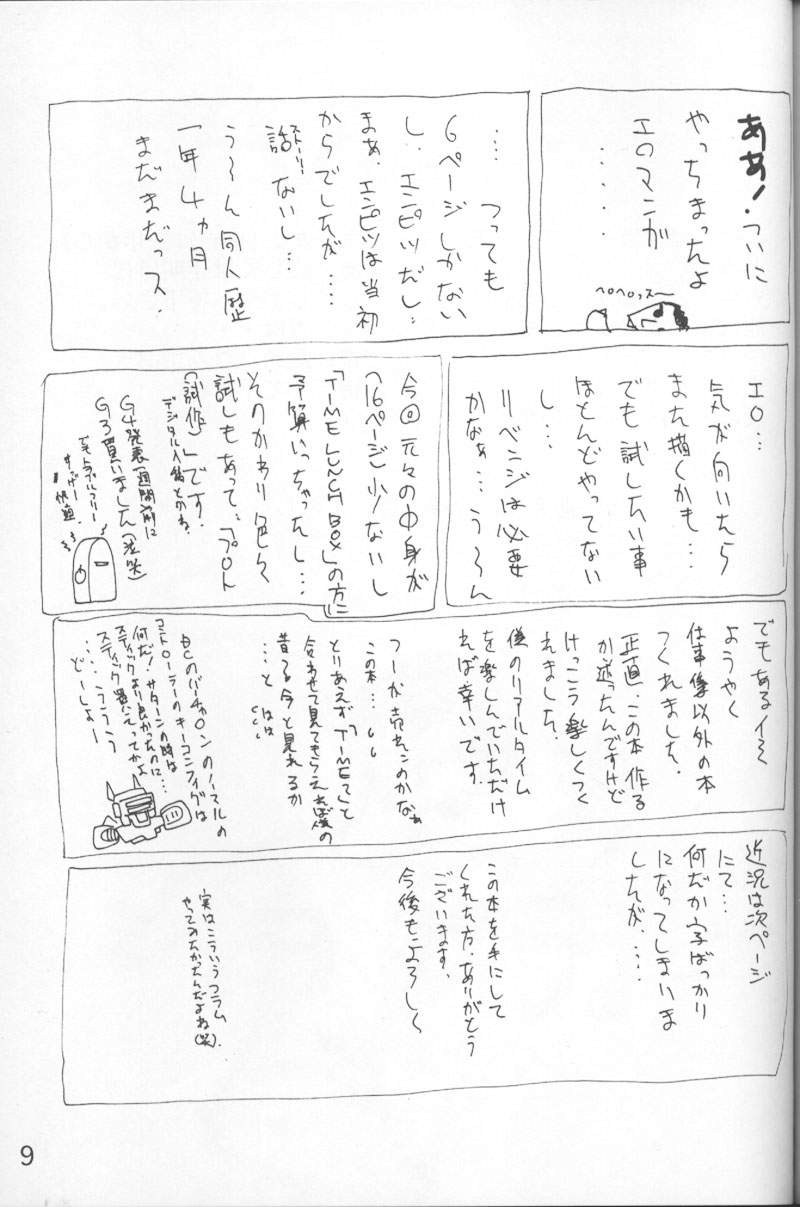 ああ!ついに
やっちまったよ
エロマンガ
・・・・・
ヘロヘロッス〜
… つっても
6ページしかない
し、エンピツだし…
まぁ、エンピツは当初
からでしたが……
ストーリー
話 ないし…
う〜ん同人歴
一年4ヵ月
まだまだっス.
エロ…
気が向いたら
また描くかも…
でも試したい事
ほとんどやってない
し…
リベンジは必要
かなぁ…う〜ん
今回元々の中身が
(16ページ)少ないし
「TIME LUNCH BOX」の方に
予算いっちゃったし…
そのかわり色々
試しもあって…「プロト
(試作)」です.
デジタル入稿とかね.
G4発表1週間前に
G3買いました(泣笑)
でもトラブルフリー
すっげー
快適.
でもあるイミ
ようやく
仕事傪以外の本
つくれました.
正直、この本作る
か迷ったんですけど
けっこう楽しくつく
れました.
僕のリアルタイム
を楽しんでいただけ
れば幸いです.
つーか売れんのかなぁ
この本…
とりあえず「TIME〜」と
合わせて見てもらえれば僕の
昔〜今と見れるか
…と はは
DCのバーチャロンのノーマルの
コントローラーのキーコンフィグは
何だ!サターンの時は
スティックより良かったのに…
スティック買えってかよ
……うううう
どーしょー
近況は次ページ
にて…
何だか字ばっかり
になってしまいま
したが、…
この本を手にして
くれた方、ありがとう
ございます.
今後もよろしく
実はこういうコラム
やってみたかったんだよね(笑).
9